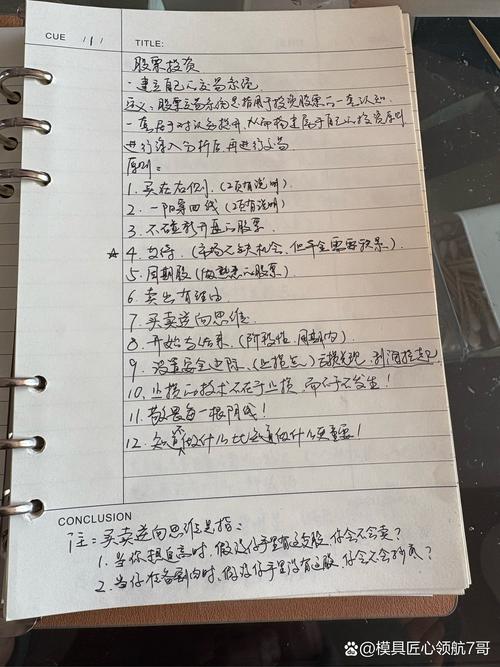 CUE 1/1 TITLE:
股票投资
·建立自己的交易系统
定义:股票交易系统是指用于投资股票的一套认知
一套居于对认为提升,从而构建居于自己的投资原则
进行深入分析后再进行交易
原则:
1. 买在右侧!(2项有说明)
2. 一阳穿四线(2项有说明)
3. 不碰新开盘的股票
★4. 支撑(市场不缺机会,但资金需要积累)
5. 周期股(做熟悉的股票)
6. 卖出有理由
7. 买卖逆向思维
8. 开始与结束(阶段性、周期内)
9. 设置安全边际(止损点)
10. 止损的技术不在于止损,而在于不发生!
11. 敬畏每一根阴线!
12. 知道不做什么比知道做什么更重要!
CONCLUSION
注:买卖逆向思维是指:
1. 当你想追高时,假设你手里有这支股,你会不会卖?
2. 当你在时,假设你手里没有这股,你会不会?
@模具匠心领航7哥